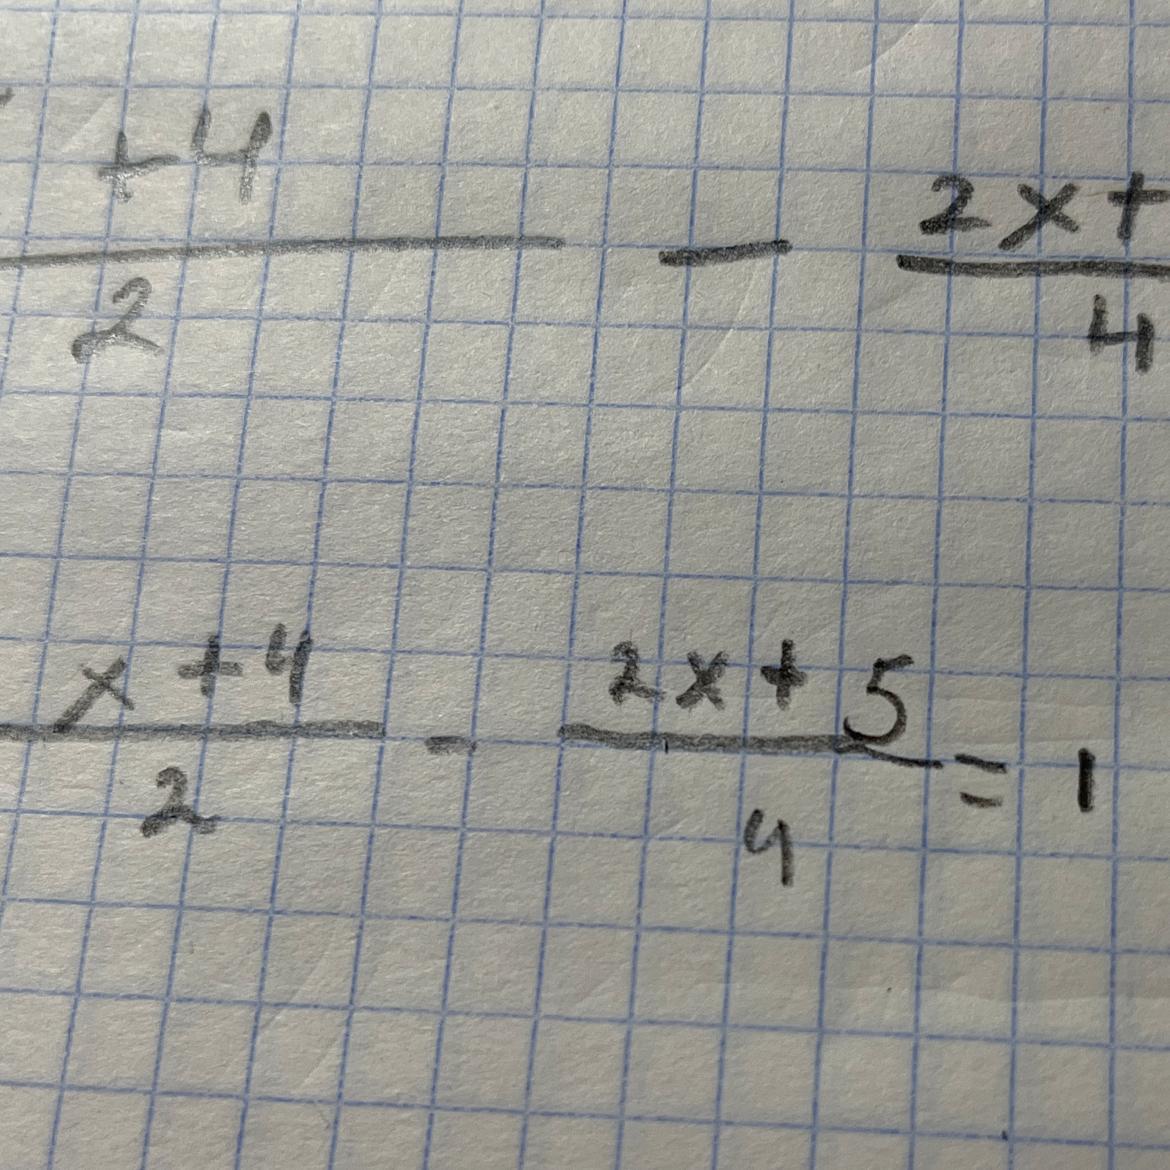 +4/2 - 2x+/4
x+4/2 - 2x+5/4 = 1